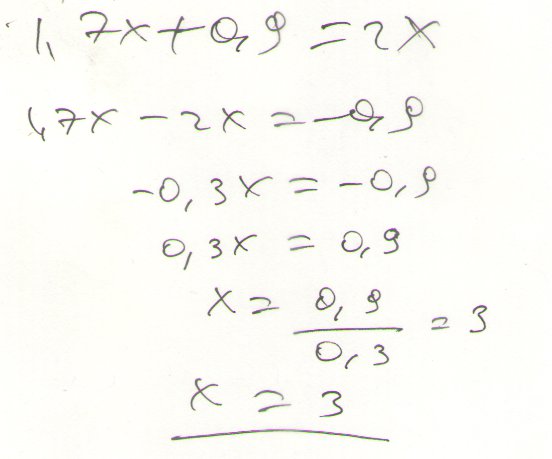 1,7x+0,9=2x
1,7x-2x=-0,9
-0,3x=-0,9
0,3x=0,9
x=0,9/0,3=3
x=3